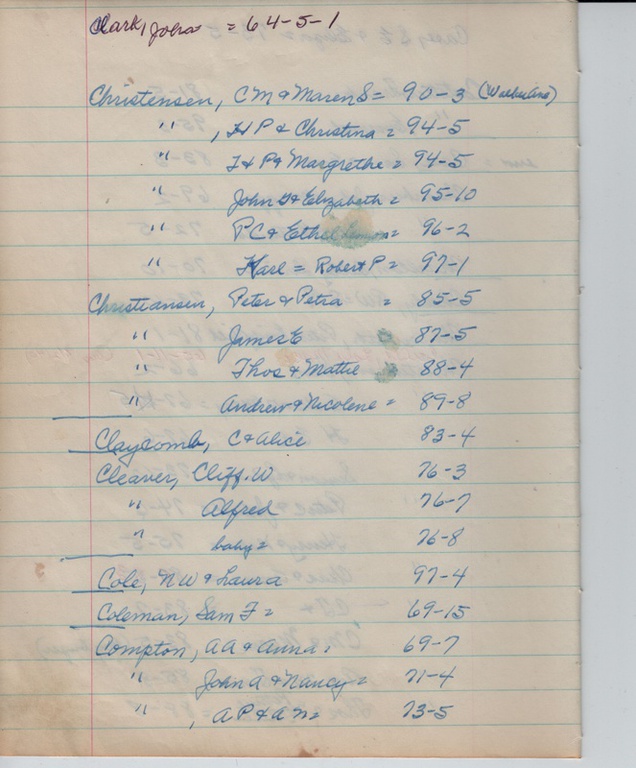 Clark, John = 64-5-1
Christensen, CM & Maren S = 90-3
" , H P & Christina = 94-5
" & P & Margrethe = 94-5
" John & Elizabeth = 95-10
" PC & Ethel = 96-2
" Karl = Robert P = 97-1
Christiansen, Peter & Petra = 85-5
" James E 87-5
" Thos & Mattie 88-4
" Andrew & Nicolene = 89-8
Claycomb, C & Alice 83-4
Cleaver, Cliff. W 76-3
" Alfred 76-7
" baby = 76-8
Cole, N W & Laura 97-4
Coleman, Sam F = 69-15
Compton, A A & Anna 69-7
" John A & Nancy = 71-4
" , A P & A M = 73-5